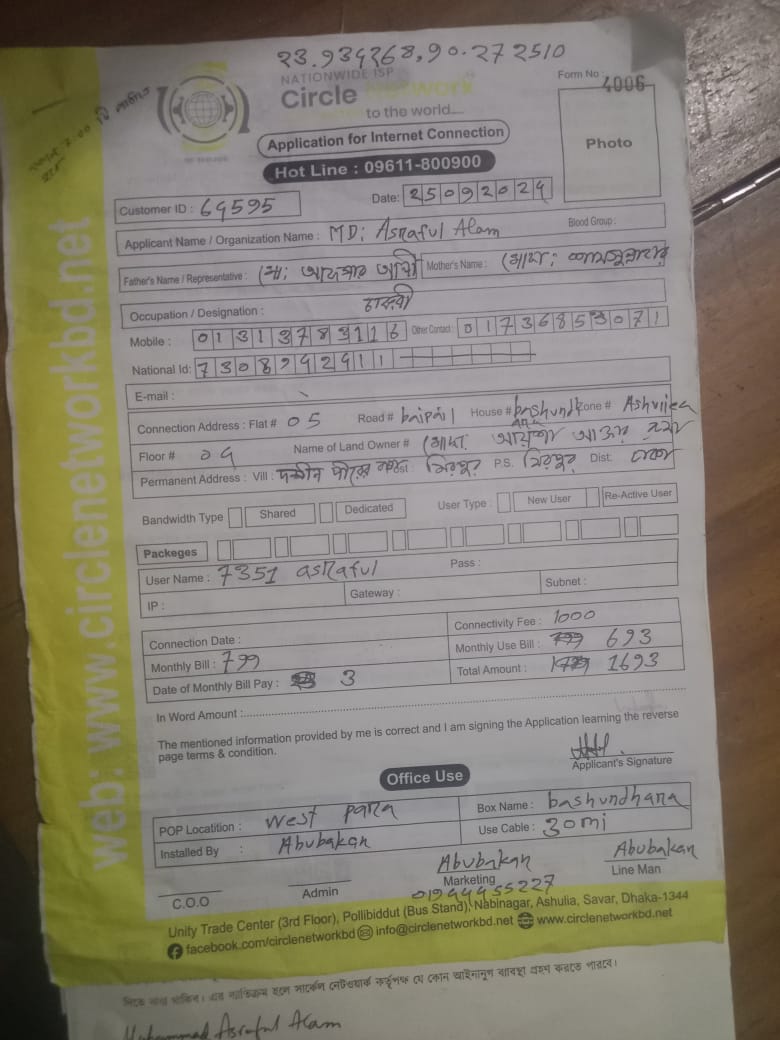 23.934268,90.272510
NATIONWIDE ISP
Circle Network
to the world....
Form No 4006
Photo
Application for Internet Connection
Hot Line : 09611-800900
Customer ID : 64595
Date: 25092024
Applicant Name / Organization Name : MD: Asraful Alam
Blood Group :
Father's Name / Representative : মো:
Mother's Name : মোছা:
Occupation / Designation : চাকুরী
Mobile : 01313783116 Other Contact : 01736853071
National Id: 7308242411
E-mail :
Connection Address : Flat # 05 Road # baipail House # bashundhara Zone # Ashuliea
Floor # 04 Name of Land Owner # মোছা:
Permanent Address : Vill : P.S. মিরপুর Dist: ঢাকা
Bandwidth Type Shared Dedicated User Type : New User Re-Active User
Packeges
User Name : 7351 asraful Pass :
IP : Gateway : Subnet :
Connection Date : Connectivity Fee : 1000
Monthly Bill : 799 Monthly Use Bill : 799 693
Date of Monthly Bill Pay : 3 Total Amount : 1693
In Word Amount :
The mentioned information provided by me is correct and I am signing the Application learning the reverse
page terms & condition.
Applicant's Signature
Office Use
POP Locatition : West para Box Name : bashundhara
Installed By : Abubakar Use Cable : 30mi
Abubakar Abubakar
C.O.O Admin Marketing Line Man
01944455227
Unity Trade Center (3rd Floor), Pollibiddut (Bus Stand), Nabinagar, Ashulia, Savar, Dhaka-1344
facebook.com/circlenetworkbd info@circlenetworkbd.net www.circlenetworkbd.net
web: www.circlenetworkbd.net
দিতে বাধ্য থাকিব। এর ব্যতিক্রম হলে সার্কেল নেটওয়ার্ক কর্তৃপক্ষ যে কোন আইনানুগ ব্যবস্থা গ্রহণ করতে পারবে।
Muhammad Asraful Alam